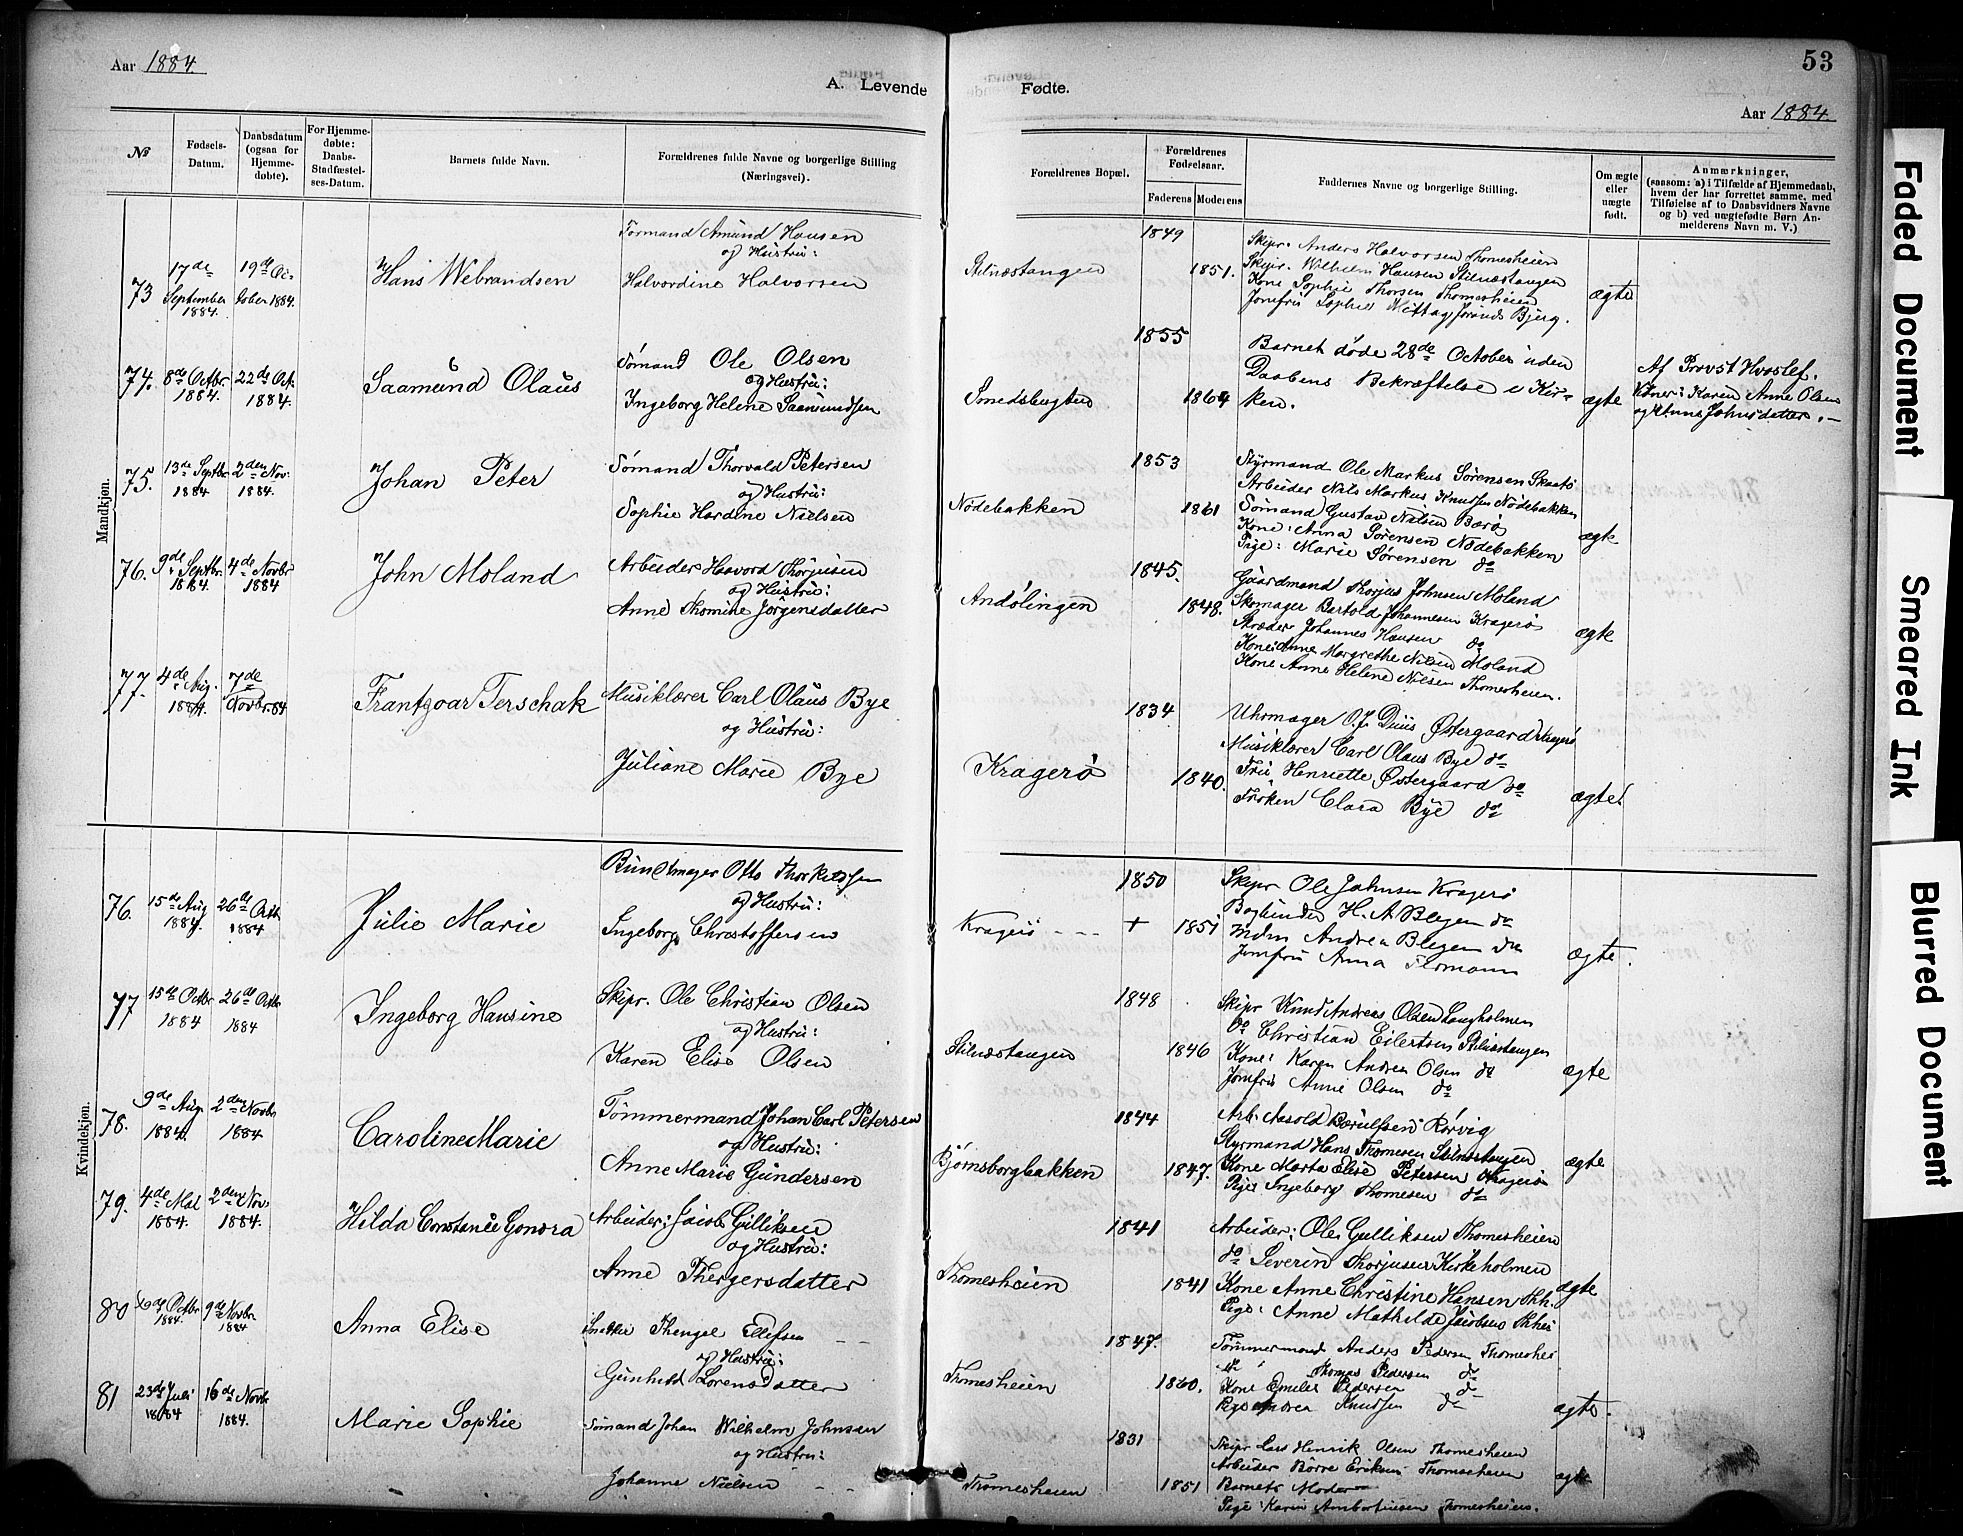 53
Aar 1884.
A. Levende Fødte.
Aar 1884.
№
Fødsels-Datum.
Daabsdatum (ogsaa for Hjemme-døbte).
For Hjemme-døbte: Daabs-Stadfæstel-ses-Datum.
Barnets fulde Navn.
Forældrenes fulde Navne og borgerlige Stilling (Næringsvei).
Forældrenes Bopæl.
Forældrenes Fødselsaar.
Faderens
Moderens
Faddernes Navne og borgerlige Stilling.
Om ægte eller uægte født.
Anmærkninger, (saasom: a) i Tilfælde af Hjemmedaab, hvem der har forrettet samme, med Tilføielse af to Daabsvidners Navne og b) ved uægtefødte Børn An-melderens Navn m. V.)
Mandkjøn.
73
17de September 1884.
19de October 1884.
Hans Webrandsen
Formand Amund Hansen
og Hustru:
Halvordine Halvorsen
Stilnæstangen
1849
1851.
Skipr. Anders Halvorsen Thomesheien
Skipr. Wilhelm Hansen Stilnæstangen
Kone Sophie Thorsen Thomesheien
Jomfru Sophie Bjerg.
ægte
74.
8de Octbr 1884.
22de Oct. 1884.
Saamund Olaus
Sømand Ole Olsen
og Hustru:
Ingeborg Helene Saamundsen
Smedsbugten
1855
1864
Barnet døde 28de October uden
Daabens Bekræftelse i Kir-
ken.
ægte
Af Provst Hvoslef.
Vidner: Karen Anne Olsen
og Anne Johnsdatter.
75.
13de Septbr 1884
2den Nov. 1884.
Johan Peter
Sømand Thorvald Petersen
og Hustru:
Sophie Hardine Nielsen
Nødebakken
1853
1861
Styrmand Ole Markus Sørensen Skaatø
Arbeider Nils Markus Knudsen Nødebakken
Sømand Gustav Nilsen Barø
Kone: Anna Sørensen Nødebakken
Pige: Marie Sørensen do
ægte
76.
9de Septbr. 1884.
4de Novbr 1884
John Moland
Arbeider Haavord Thorjusen
og Hustru:
Anne Thomine Jørgensdatter
Andølingen
1845.
1848.
Gaardmand Thorjus Johnsen Moland
Skomager Bartold Johannesen Kragerø
Skræder Johannes Hansen do
Kone Anne Margrethe Nilsen Moland
Kone Anne Helene Nilsen Thomesheien.
ægte
77.
4de Aug. 1884.
7de Novbr. 84
Frantzoar Terschak
Musiklærer Carl Olaus Bye
og Hustru:
Juliane Marie Bye
Kragerø
1834
1840.
Uhrmager O.J. Duus Østergaard Kragerø
Musiklærer Carl Olaus Bye do
Fru Henriette Østergaard do
Frøken Clara Bye do
ægte
Kvindekjøn.
76.
15de Aug 1884.
26de Octb 1884
Julie Marie
Bundtmager Otto Thorkildsen
og Hustru:
Ingeborg Christoffersen
Kragerø - - - +
1850
1851
Skipr Ole Johnsen Kragerø
Bogbinder H. A. Blegen do
Mdm Andrea Blegen do
Jomfru Anna
ægte.
77
15de Octbr 1884
26de Octbr 1884
Ingeborg Hansine
Skipr. Ole Christian Olsen
og Hustru:
Karen Elise Olsen
Stilnæstangen
1848
1846
Skipr Knud Andreas Olsen Langholmen
do Christian Eilertsen Stilnæstangen
Kone: Karen Andrea Olsen do
Jomfru Anne Olsen do
ægte
78.
9de Aug. 1884.
2den Novbr 1884
Caroline Marie
Tømmermand Johan Carl Petersen
og Hustru:
Anne Marie Gundersen
Bjørnsborgbakken
1844
1847.
Arb. Aasold Børulfsen Rørvig
Styrmand Hans Thomesen Stilnæstangen
Kone Marta Elise Petersen Kragerø
Pige Ingeborg Thomesen do
ægte
79.
4de Mai 1884.
2den Nov. 1884.
Hilda Constance Gonora
Arbeider: Jacob Gulliksen
og Hustru:
Anne Thergersdatter
Thomesheien
1841
1841
Arbeider: Ole Gulliksen Thomesheien
do Severin Thorjusen Kirkeholmen
Kone Anne Christine Hansen Thh.
Pige: Anne Mathilde Jacobsen Thhei
ægte
80
Octbr 1884.
9de Novbr 1884
Anna Elise
Snekker Thengel Ellefsen
og Hustru:
Gunhild Lorensdatter
Thomesheien
1847.
1860.
Tømmermand Anders Pedersen Thomeshei
do Thomas Pedersen do
Kone Emilie Pedersen do
Pige Andrea Knudsen do
ægte.
81
23de Juli 1884
16de Novb. 1884.
Marie Sophie
Sømand Johan Wilhelm Johnsen
og Hustru:
Johanne Nielsen
Thomesheien
1831
1851
Skipr Lars Henrik Olsen Thomesheien
Arbeider Børre Eriksen Thomesheien
Barnets Moder
Pige: Karen Ambortinsen Thomesheien.
ægte
Faded Document
Smeared Ink
Blurred Document